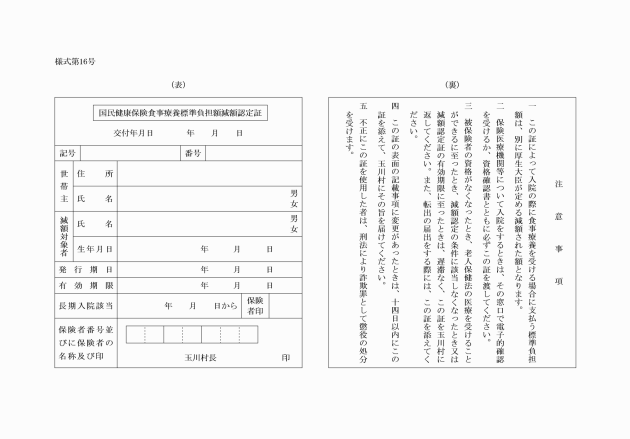 様式第16号
（表）
国民健康保険食事療養標準負担額減額認定証
交付年月日　年　月　日
記号　番号
世帯主　住所
氏名　男女
減額対象者　氏名　男女
生年月日　年　月　日
発行期日　年　月　日
有効期限　年　月　日
長期入院該当　年　月　日から　保険者印
保険者番号並
びに保険者の
名称及び印
玉川村長　印
（裏）
注意事項
一　この証によって入院の際に食事療養を受ける場合に支払う標準負担
額は、別に厚生大臣が定める減額された額となります。
二　保険医療機関等について入院をするときは、その窓口で電子的確認
を受けるか、資格確認書とともに必ずこの証を渡してください。
三　被保険者の資格がなくなったとき、老人保健法の医療を受けること
ができるに至ったとき、減額認定の条件に該当しなくなったとき又は
減額認定証の有効期限に至ったときは、遅滞なく、この証を玉川村に
返してください。また、転出の届出をする際には、この証を添えてく
ださい。
四　この証の表面の記載事項に変更があったときは、十四日以内にこの
証を添えて、玉川村にその旨を届けてください。
五　不正にこの証を使用した者は、刑法により詐欺罪として懲役の処分
を受けます。